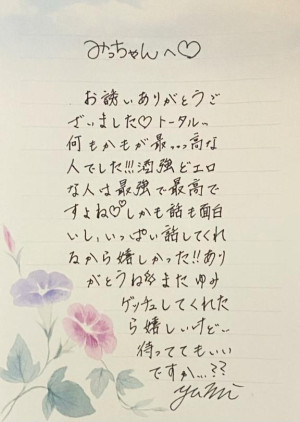 みっちゃんへ♡
お誘いありがとうご
ざいました♡トータルっ
何もかもが最...っ高な
人でした!!!酒強どエロ
な人は最強で最高で
すよね♡♡しかも話も面白
いし、いっぱい話してくれ
るから嬉しかった!!あり
がとうね また ゆみ
ゲッチュしてくれた
ら嬉しいけど...
待っててもいい
ですか...??
yumi